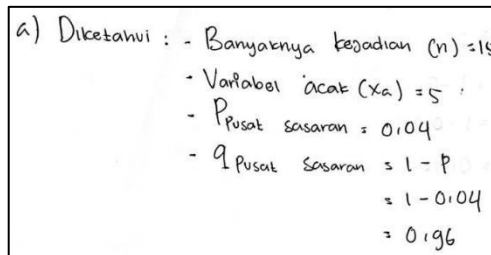 a) Diketahui : - Banyaknya kejadian (n) = 15
- Variabel acak (xa) = 5
- P pusat sasaran = 0,04
- q pusat sasaran = 1 - P
= 1 - 0,04
= 0,96